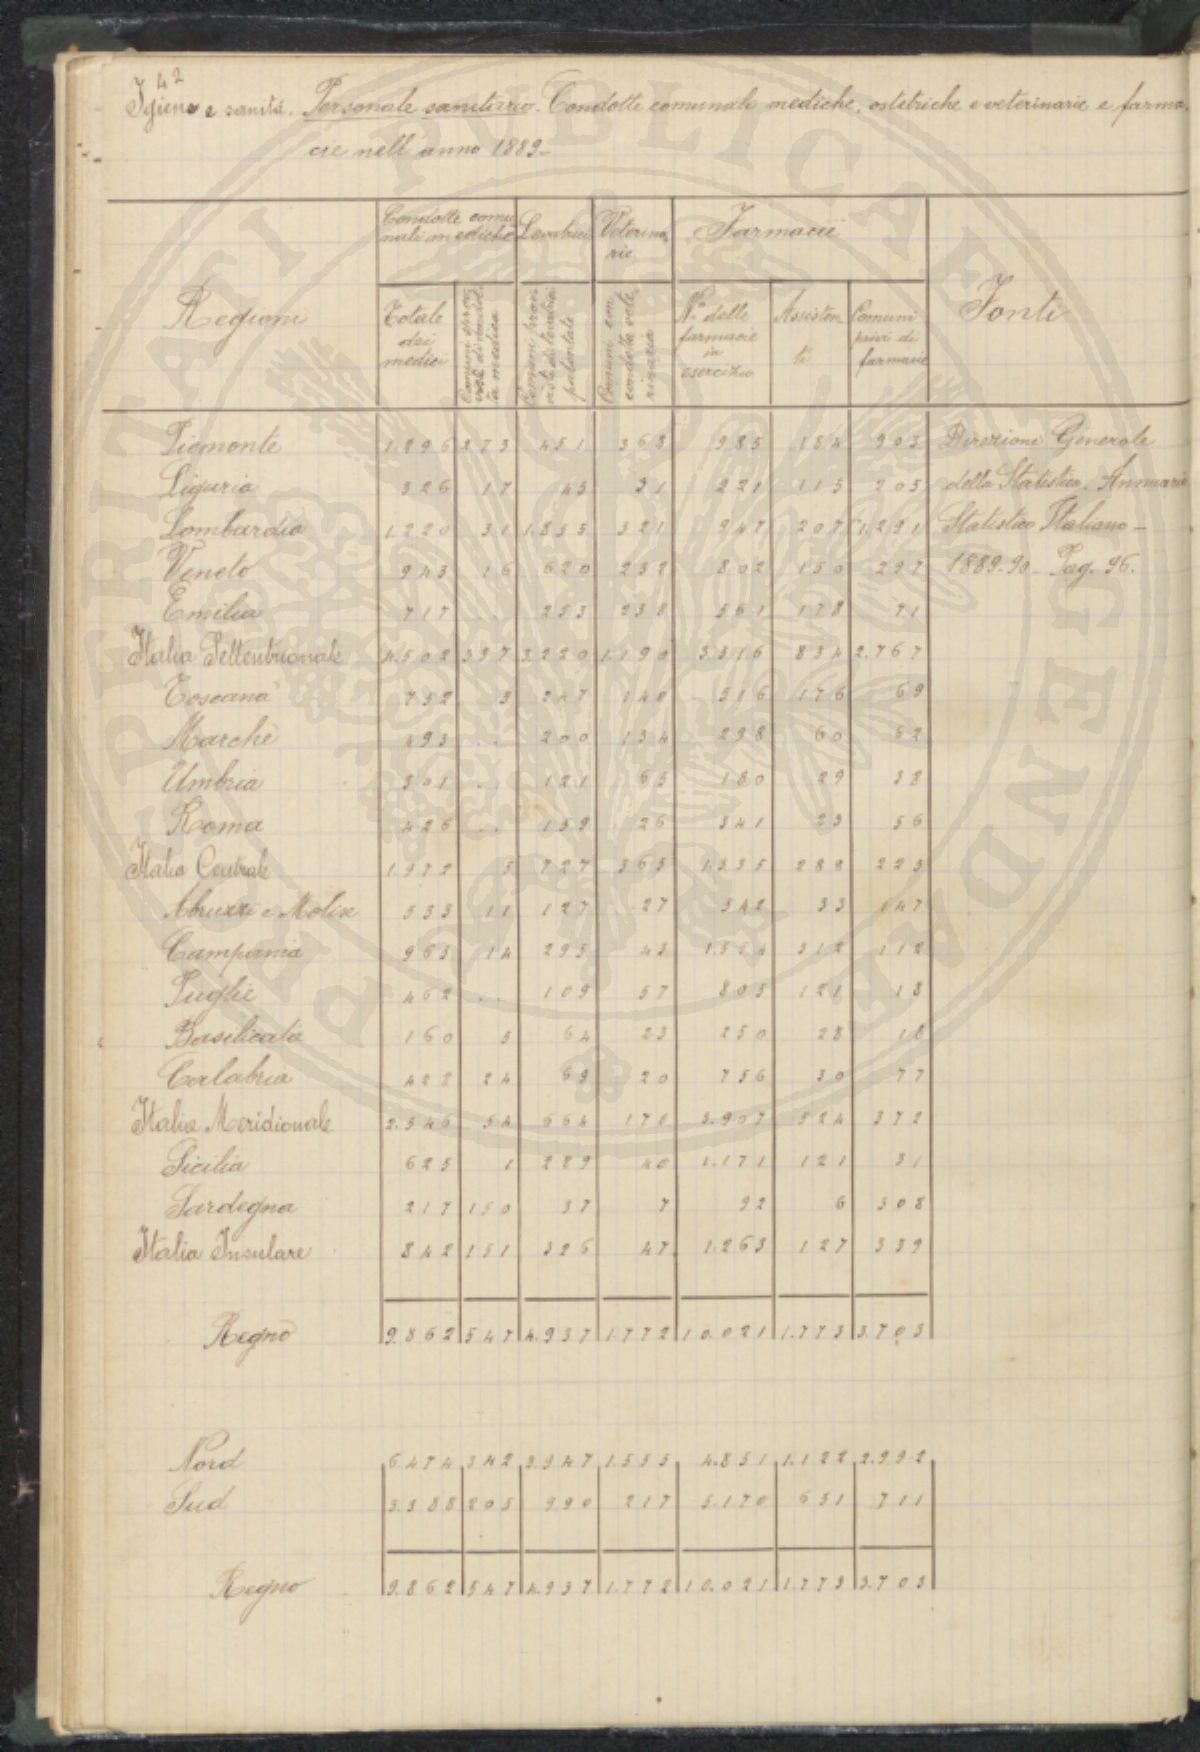 42
Igiene e sanità. Personale sanitario. Condotte comunali mediche, ostetriche e veterinarie e farma
cie nell'anno 1889 -
Regioni
Condotte comu
nali mediche
Levatrici
Veterina
rie
Farmacie
Fonti
Totale
dei
medici
Comuni sprov
visti di condot
ta medica
Comuni provv
isti di levatrici
patentate
Comuni con
condotta vete
rinaria
N.º delle
farmacie
in
esercizio
Assisten
ti
Comuni
privi di
farmacie
Piemonte 1.296 273 451 368 985 184 903 Direzione Generale
Liguria 326 17 43 31 221 115 205 della Statistica. Annuario
Lombardia 1.220 31 1.853 321 947 207 1.291 Statistico Italiano -
Veneto 943 16 620 232 802 150 297 1889-90 - Pag. 96.
Emilia 717 .. 253 238 561 178 71
Italia Settentrionale 4.502 337 3.220 1.190 3.516 834 2.767
Toscana 752 5 247 140 516 176 69
Marche 493 .. 200 134 298 60 62
Umbria 301 .. 121 65 180 29 38
Roma 426 .. 159 26 341 23 56
Italia Centrale 1.972 5 727 365 1.335 288 225
Abruzzi e Molise 533 11 127 27 542 33 147
Campania 965 14 295 43 1.554 312 112
Puglie 462 .. 109 57 805 121 18
Basilicata 160 5 64 23 250 28 18
Calabria 426 24 69 20 756 30 77
Italia Meridionale 2.546 54 664 170 3.907 524 372
Sicilia 625 1 289 40 1.171 121 31
Sardegna 217 150 37 7 92 6 308
Italia Insulare 842 151 326 47 1.263 127 339
Regno 9.862 547 4.937 1.772 10.021 1.773 3.703
Nord 6.474 342 3.947 1.555 4.851 1.122 2.992
Sud 3.388 205 990 217 5.170 651 711
Regno 9.862 547 4.937 1.772 10.021 1.773 3.703